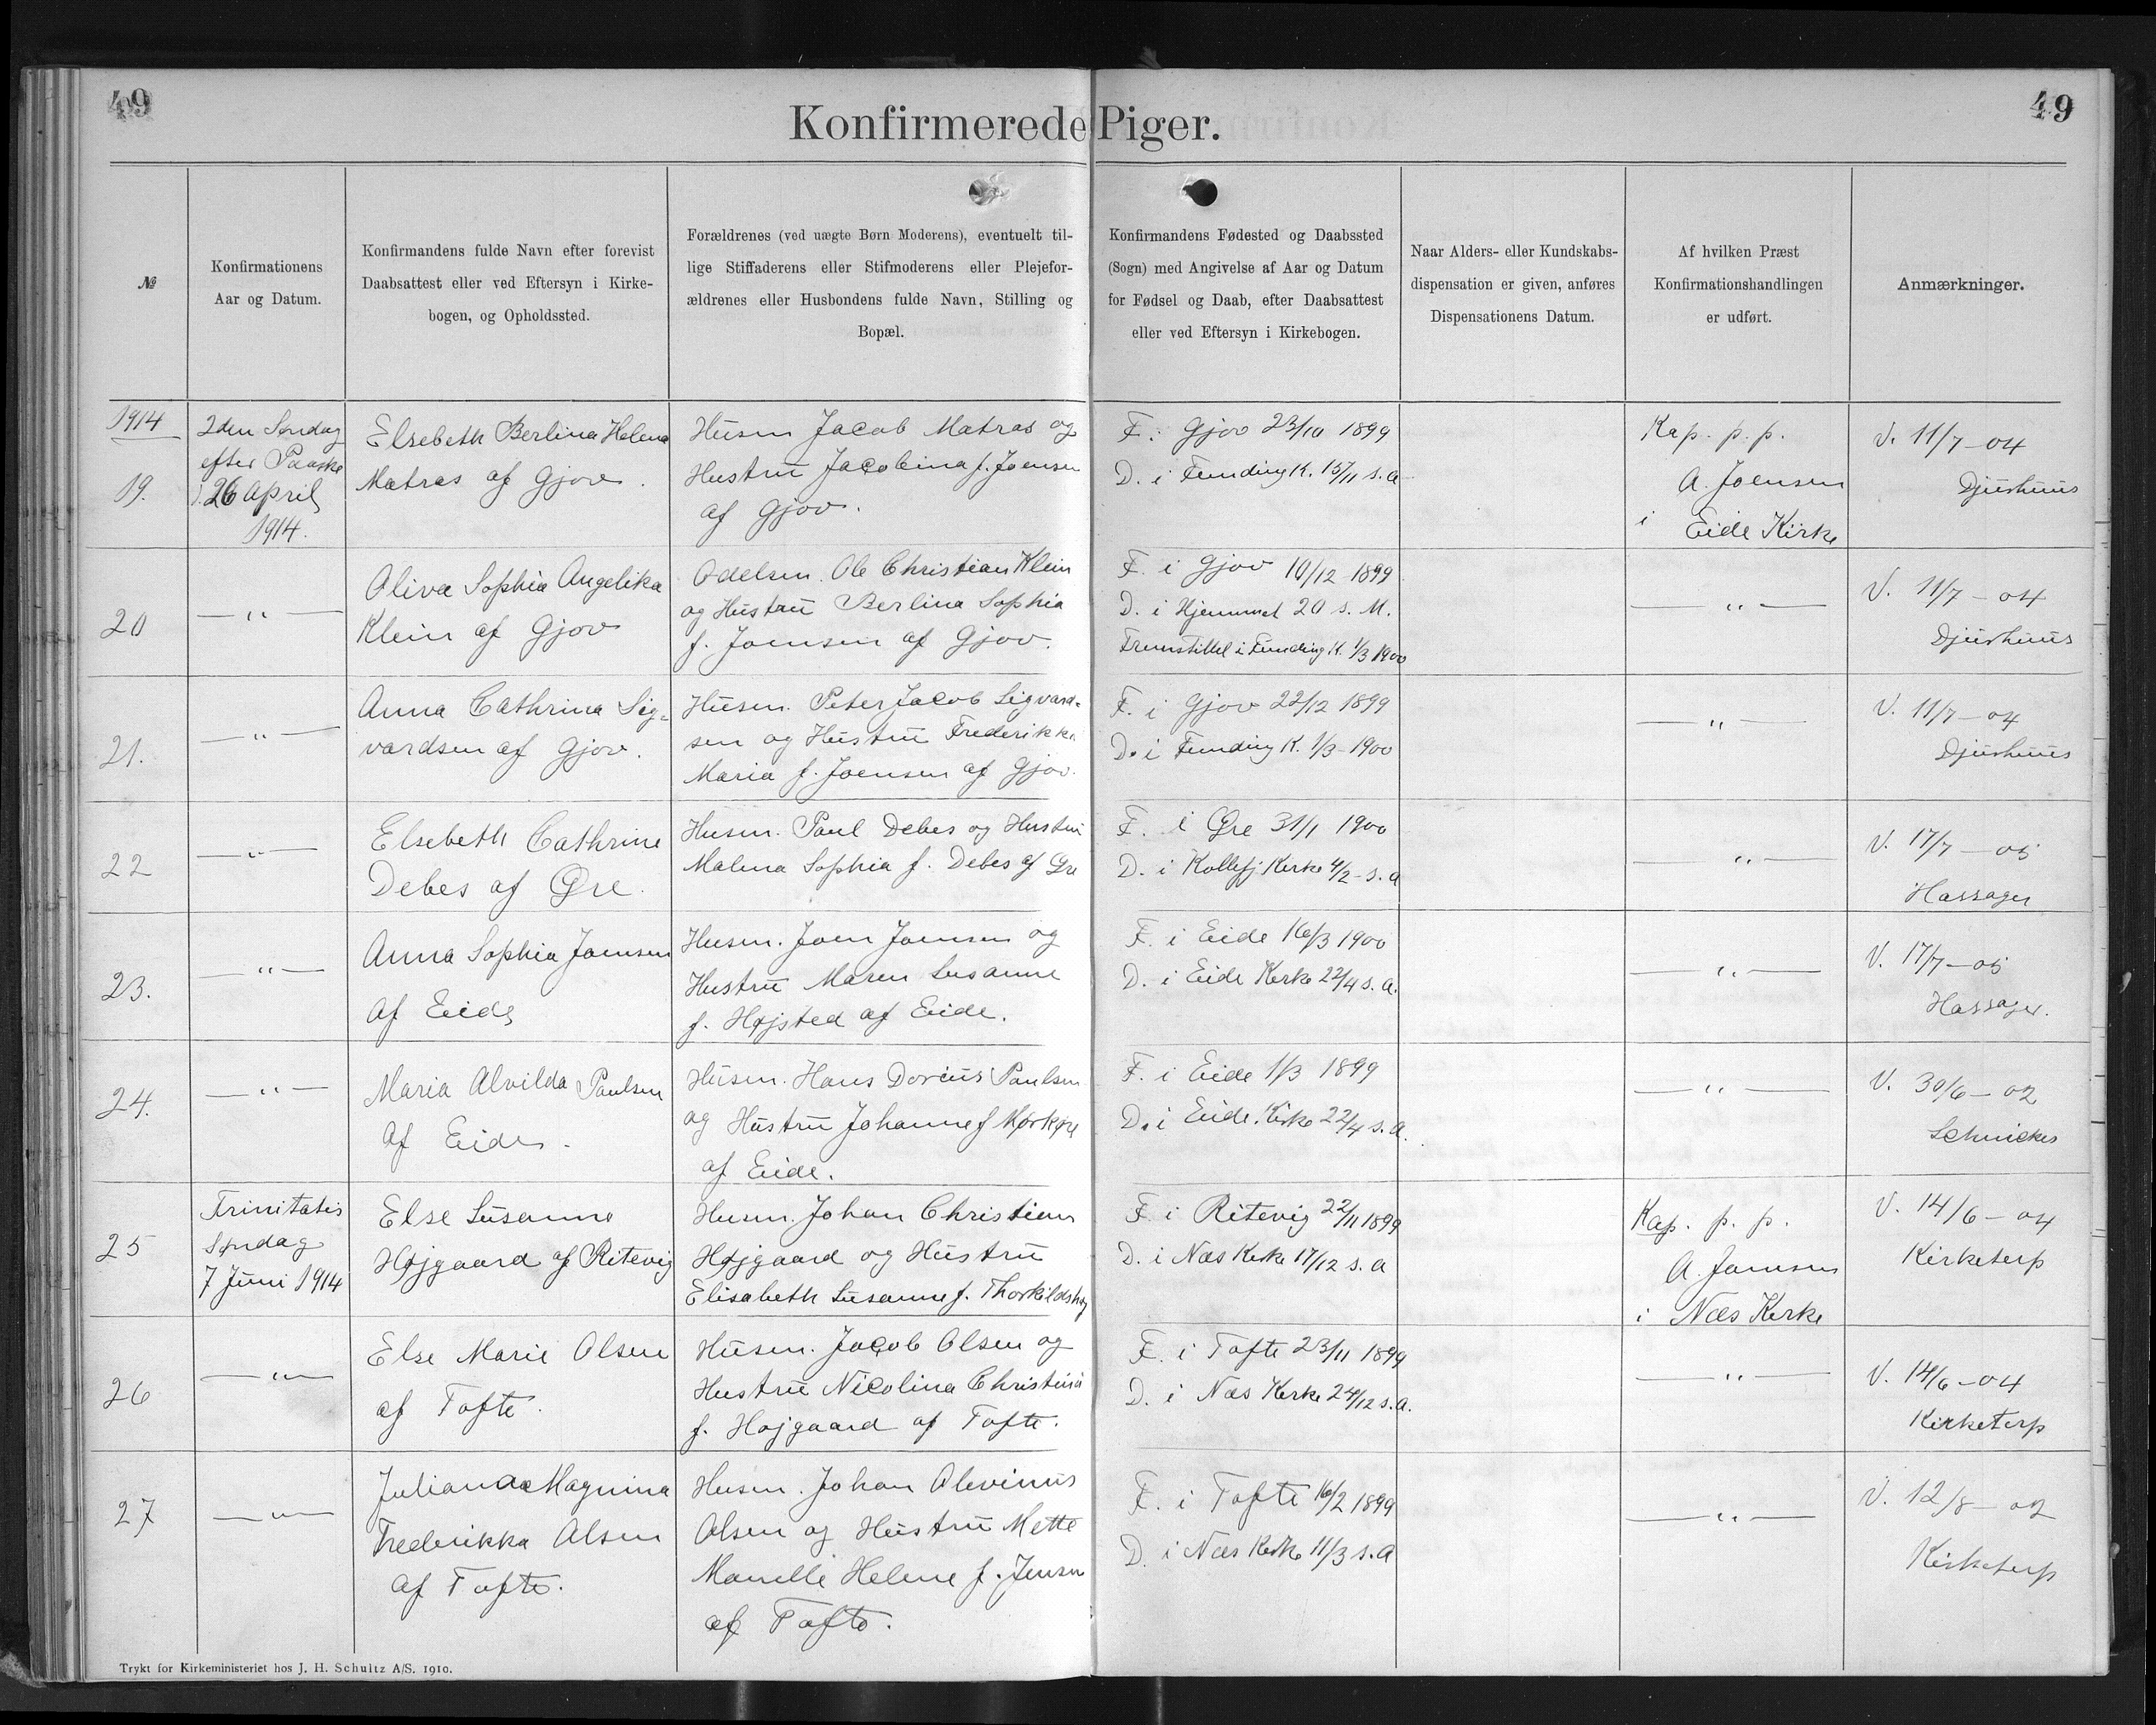 49
49
Konfirmerede Piger.
№
Konfirmationens
Aar og Datum.
Konfirmandens fulde Navn efter forevist
Daabsattest eller ved Eftersyn i Kirke-
bogen, og Opholdssted.
Forældrenes (ved uægte Børn Moderens), eventuelt til-
lige Stiffaderens eller Stifmoderens eller Plejefor-
ældrenes eller Husbondens fulde Navn, Stilling og
Bopæl.
Konfirmandens Fødested og Daabssted
(Sogn) med Angivelse af Aar og Datum
for Fødsel og Daab, efter Daabsattest
eller ved Eftersyn i Kirkebogen.
Naar Alders- eller Kundskabs-
dispensation er given, anføres
Dispensationens Datum.
Af hvilken Præst
Konfirmationshandlingen
er udført.
Anmærkninger.
1914
19.
2den Søndag
efter Paaske
26 April
1914.
Elsebeth Berlina Helena
Matras af Gjov.
Husm Jacob Matras og
Hustru Jacobina f. Joensen
af Gjov.
F. Gjov 23/10 1899
D. i Funding K. 15/11 s. a
Kap. p. p.
A. Joensen
i Eide Kirke
V. 11/7-04
Djurhuus
20
—"—
Oliva Sophia Angelika
Klein af Gjov
Odelsm. Ole Christian Klein
og Hustru Berlina Sophia
f. Joensen af Gjov.
F. i Gjov 10/12 1899
D. i Hjemmet 20 s. M.
Fremstillet i Funding K. 1/3 1900
—"—
V. 11/7-04
Djurhuus
21.
—"—
Anna Cathrina Sig-
vardsen af Gjov.
Husm. Peter Jacob Sigvard-
sen og Hustru Frederikke
Maria f. Joensen af Gjov.
F. i Gjov 22/12 1899
D. i Funding K. 1/3-1900
—"—
V. 11/7-04
Djurhuus
22
—"—
Elsebeth Cathrine
Debes af Øre.
Husm. Paul Debes og Hustru
Malena Sophia f. Debes af Øre
F. i Øre 31/1 1900
D. i Kollefj Kirke 4/2- s. a
—"—
V. 17/7-05
Hassager
23.
—"—
Anna Sophia Joensen
af Eide
Husm. Joen Joensen og
Hustru Maren Susanne
f. Højsted af Eide.
F. i Eide 16/3 1900
D. i Eide Kirke 22/4 s. a.
—"—
V. 17/7-05
Hassager.
24.
—"—
Maria Alvilda Paulsen
af Eide.
Husm. Hans Dorius Paulsen
og Hustru Johanne f Mørkøre
af Eide.
F. i Eide 1/3 1899
D. i Eide Kirke 22/4 s. a.
—"—
V. 30/6-02
Schwickes
25
Trinitatis
Søndag
7 Juni 1914
Else Susanne
Højgaard af Ritevig
Husm. Johan Christian
Højgaard og Hustru
Elisabeth Susanne f. Thorkildshøj
F. i Ritevig 22/11 1899
D. i Næs Kirke 17/12 s. a
Kap. p. p.
A. Joensen
i Næs Kirke
V. 14/6-04
Kirketerp
26
—"—
Else Marie Olsen
af Tofte.
Husm. Jacob Olsen og
Hustru Nicolina Christina
f. Højgaard af Tofte.
F. i Tofte 23/11 1899
D. i Næs Kirke 24/12 s. a.
—"—
V. 14/6-04
Kirketerp
27
—"—
Juliana Magnina
Frederikka Olsen
af Tofte.
Husm. Johan Olevinus
Olsen og Hustru Mette
Marelle Helene f. Jensen
af Tofte.
F. i Tofte 16/2 1899
D. i Næs Kirke 11/3 s. a
—"—
V. 12/8-02
Kirketerp
Trykt for Kirkeministeriet hos J. H. Schultz A/S. 1910.